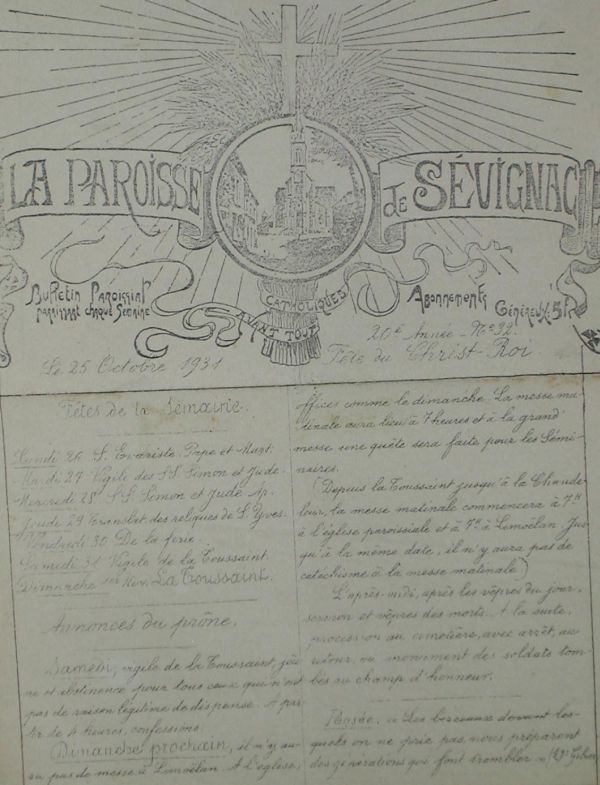 LA PAROISSE
de SÉVIGNAC
Bulletin Paroissial
paraissant chaque Semaine
CATHOLIQUES
AVANT TOUT
Abonnements
Généreux: 5f
20e Année - No 32
Le 25 Octobre 1931
Fête du Christ-Roi
Fêtes de la Semaine.
Lundi 26 S. Evariste. Pape et Mart.
Mardi 27 Vigile des SS. Simon et Jude.
Mercredi 28 SS. Simon et Jude Ap.
Jeudi 29 Translat. des reliques de S. Yves.
Vendredi 30 De la férie.
Samedi 31 Vigile de la Toussaint.
Dimanche 1er Nov. La Toussaint.
Annonces du prône.
Samedi, vigile de la Toussaint, jeû-
ne et abstinence pour tous ceux qui n'ont
pas de raison légitime de dispense. A par-
tir de 4 heures, confessions.
Dimanche prochain, il n'y au-
ra pas de messe à Lomoëlan. A l'église,
offices comme le dimanche. La messe ma-
tinale aura lieu à 7 heures et à la grand'
messe une quête sera faite pour les Sémi-
naires.
(Depuis la Toussaint jusqu'à la Chande-
leur, la messe matinale commencera à 7h
à l'église paroissiale et à 7h à Lomoëlan. Jus
qu'à la même date, il n'y aura pas de
catéchisme à la messe matinale)
L'après-midi, après les vêpres du jour,
sermon et vêpres des morts. A la suite,
procession au cimetière, avec arrêt, au
retour, au monument des soldats tom-
bés au champ d'honneur.
Pensée. « Les berceaux devant les-
quels on ne prie pas, nous préparent
des générations qui font trembler »